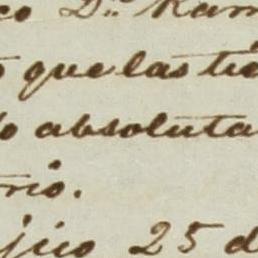 co Dn. Ram
que las tie
o absoluta
rio.
jico 25 d